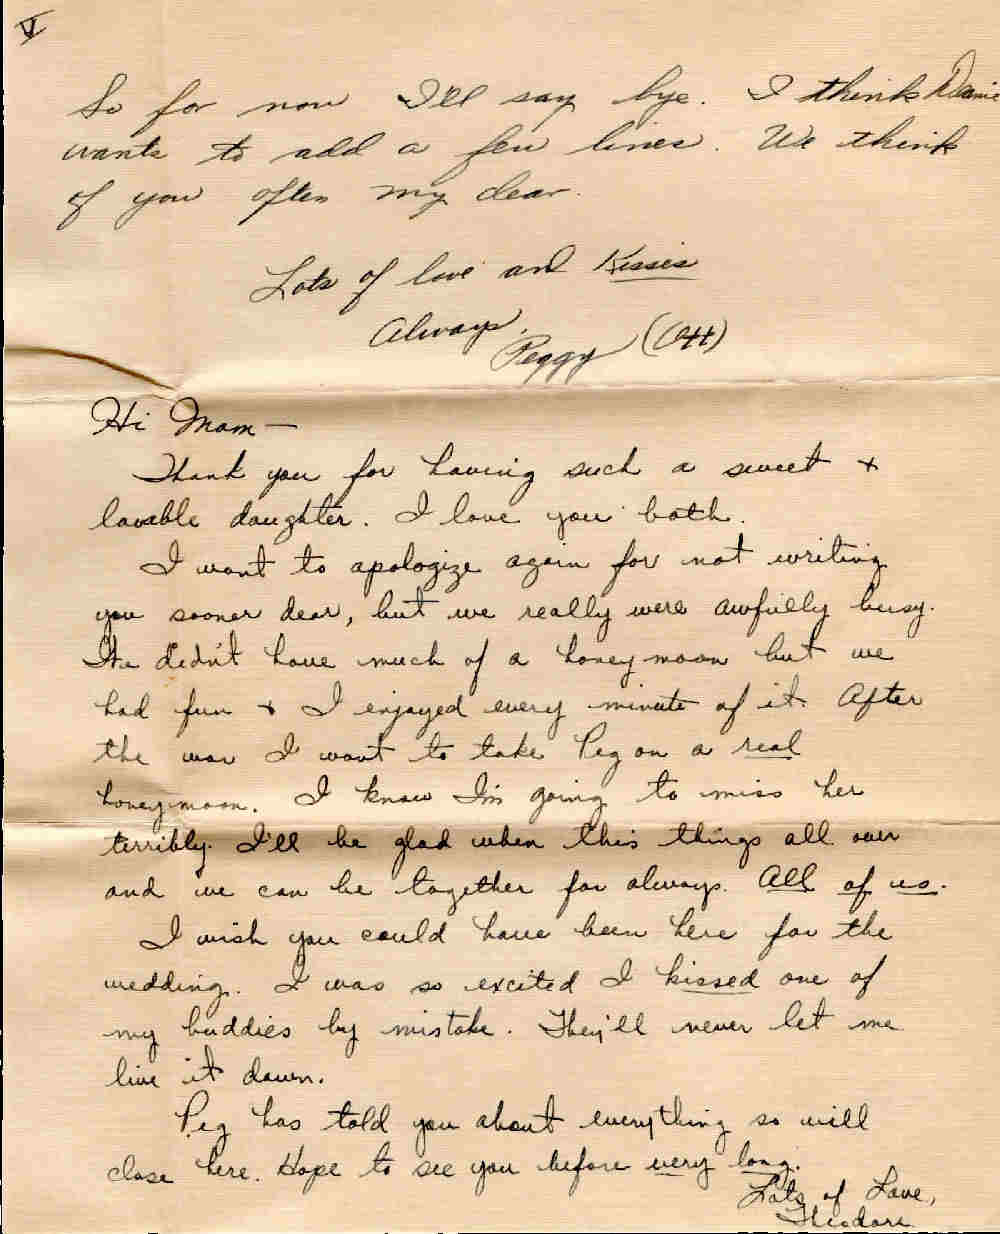 V
So for now I'll say bye. I think Deanie
wants to add a few lines. We think
of you often my dear.
Lots of love and Kisses
Always,
Peggy (Ott)
Hi Mom —
Thank you for having such a sweet +
lovable daughter. I love you both.
I want to apologize again for not writing
you sooner dear, but we really were awfully busy.
We didn't have much of a honeymoon but we
had fun + I enjoyed every minute of it. After
the war I want to take Peg on a real
honeymoon. I know I'm going to miss her
terribly. I'll be glad when this things all over
and we can be together for always. All of us.
I wish you could have been here for the
wedding. I was so excited I kissed one of
my buddies by mistake. They'll never let me
live it down.
Peg has told you about everything so will
close here. Hope to see you before very long.
Lots of Love,
Theodore